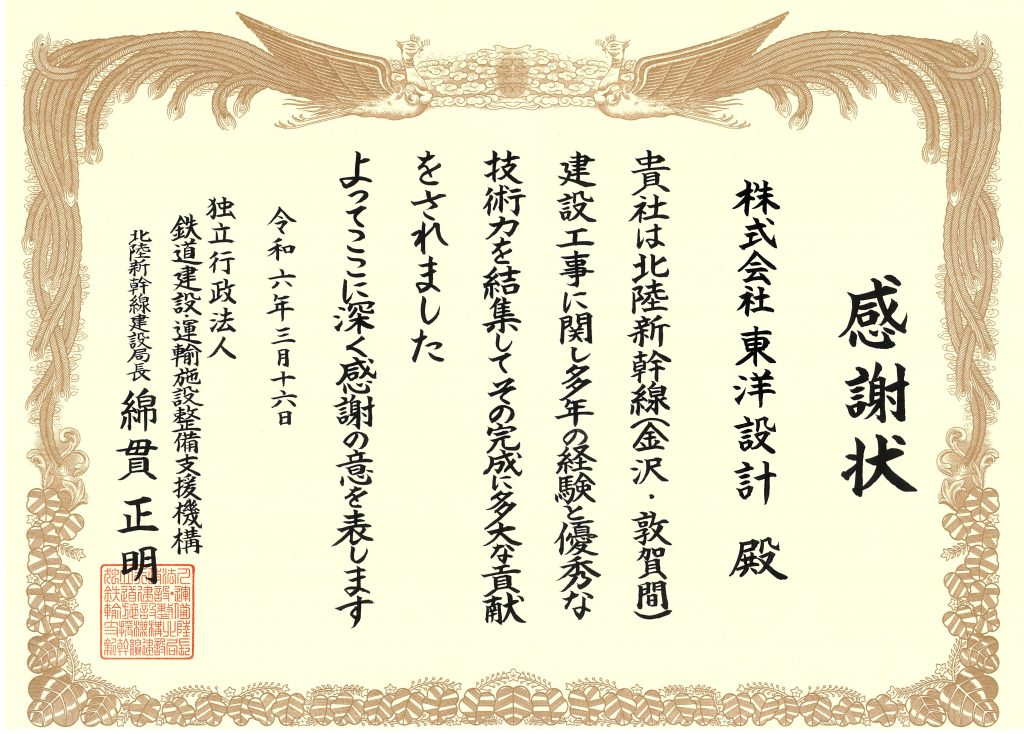 感謝状
株式会社 東洋設計 殿
貴社は北陸新幹線(金沢・敦賀間)
建設工事に関し多年の経験と優秀な
技術力を結集してその完成に多大な貢献
をされました
よってここに深く感謝の意を表します
令和六年三月十六日
独立行政法人
鉄道建設・運輸施設整備支援機構
北陸新幹線建設局長 綿貫正明